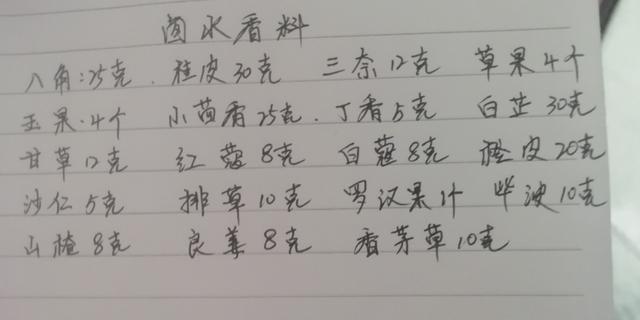 卤水香料
八角:25克. 桂皮30克 三奈12克 草果4个
玉果.4个 小茴香25克. 丁香5克 白芷30克
甘草12克 红蔻8克 白蔻8克 陈皮20克
沙仁5克 排草10克 罗汉果1个 毕波10克
山楂8克 良姜8克 香茅草10克